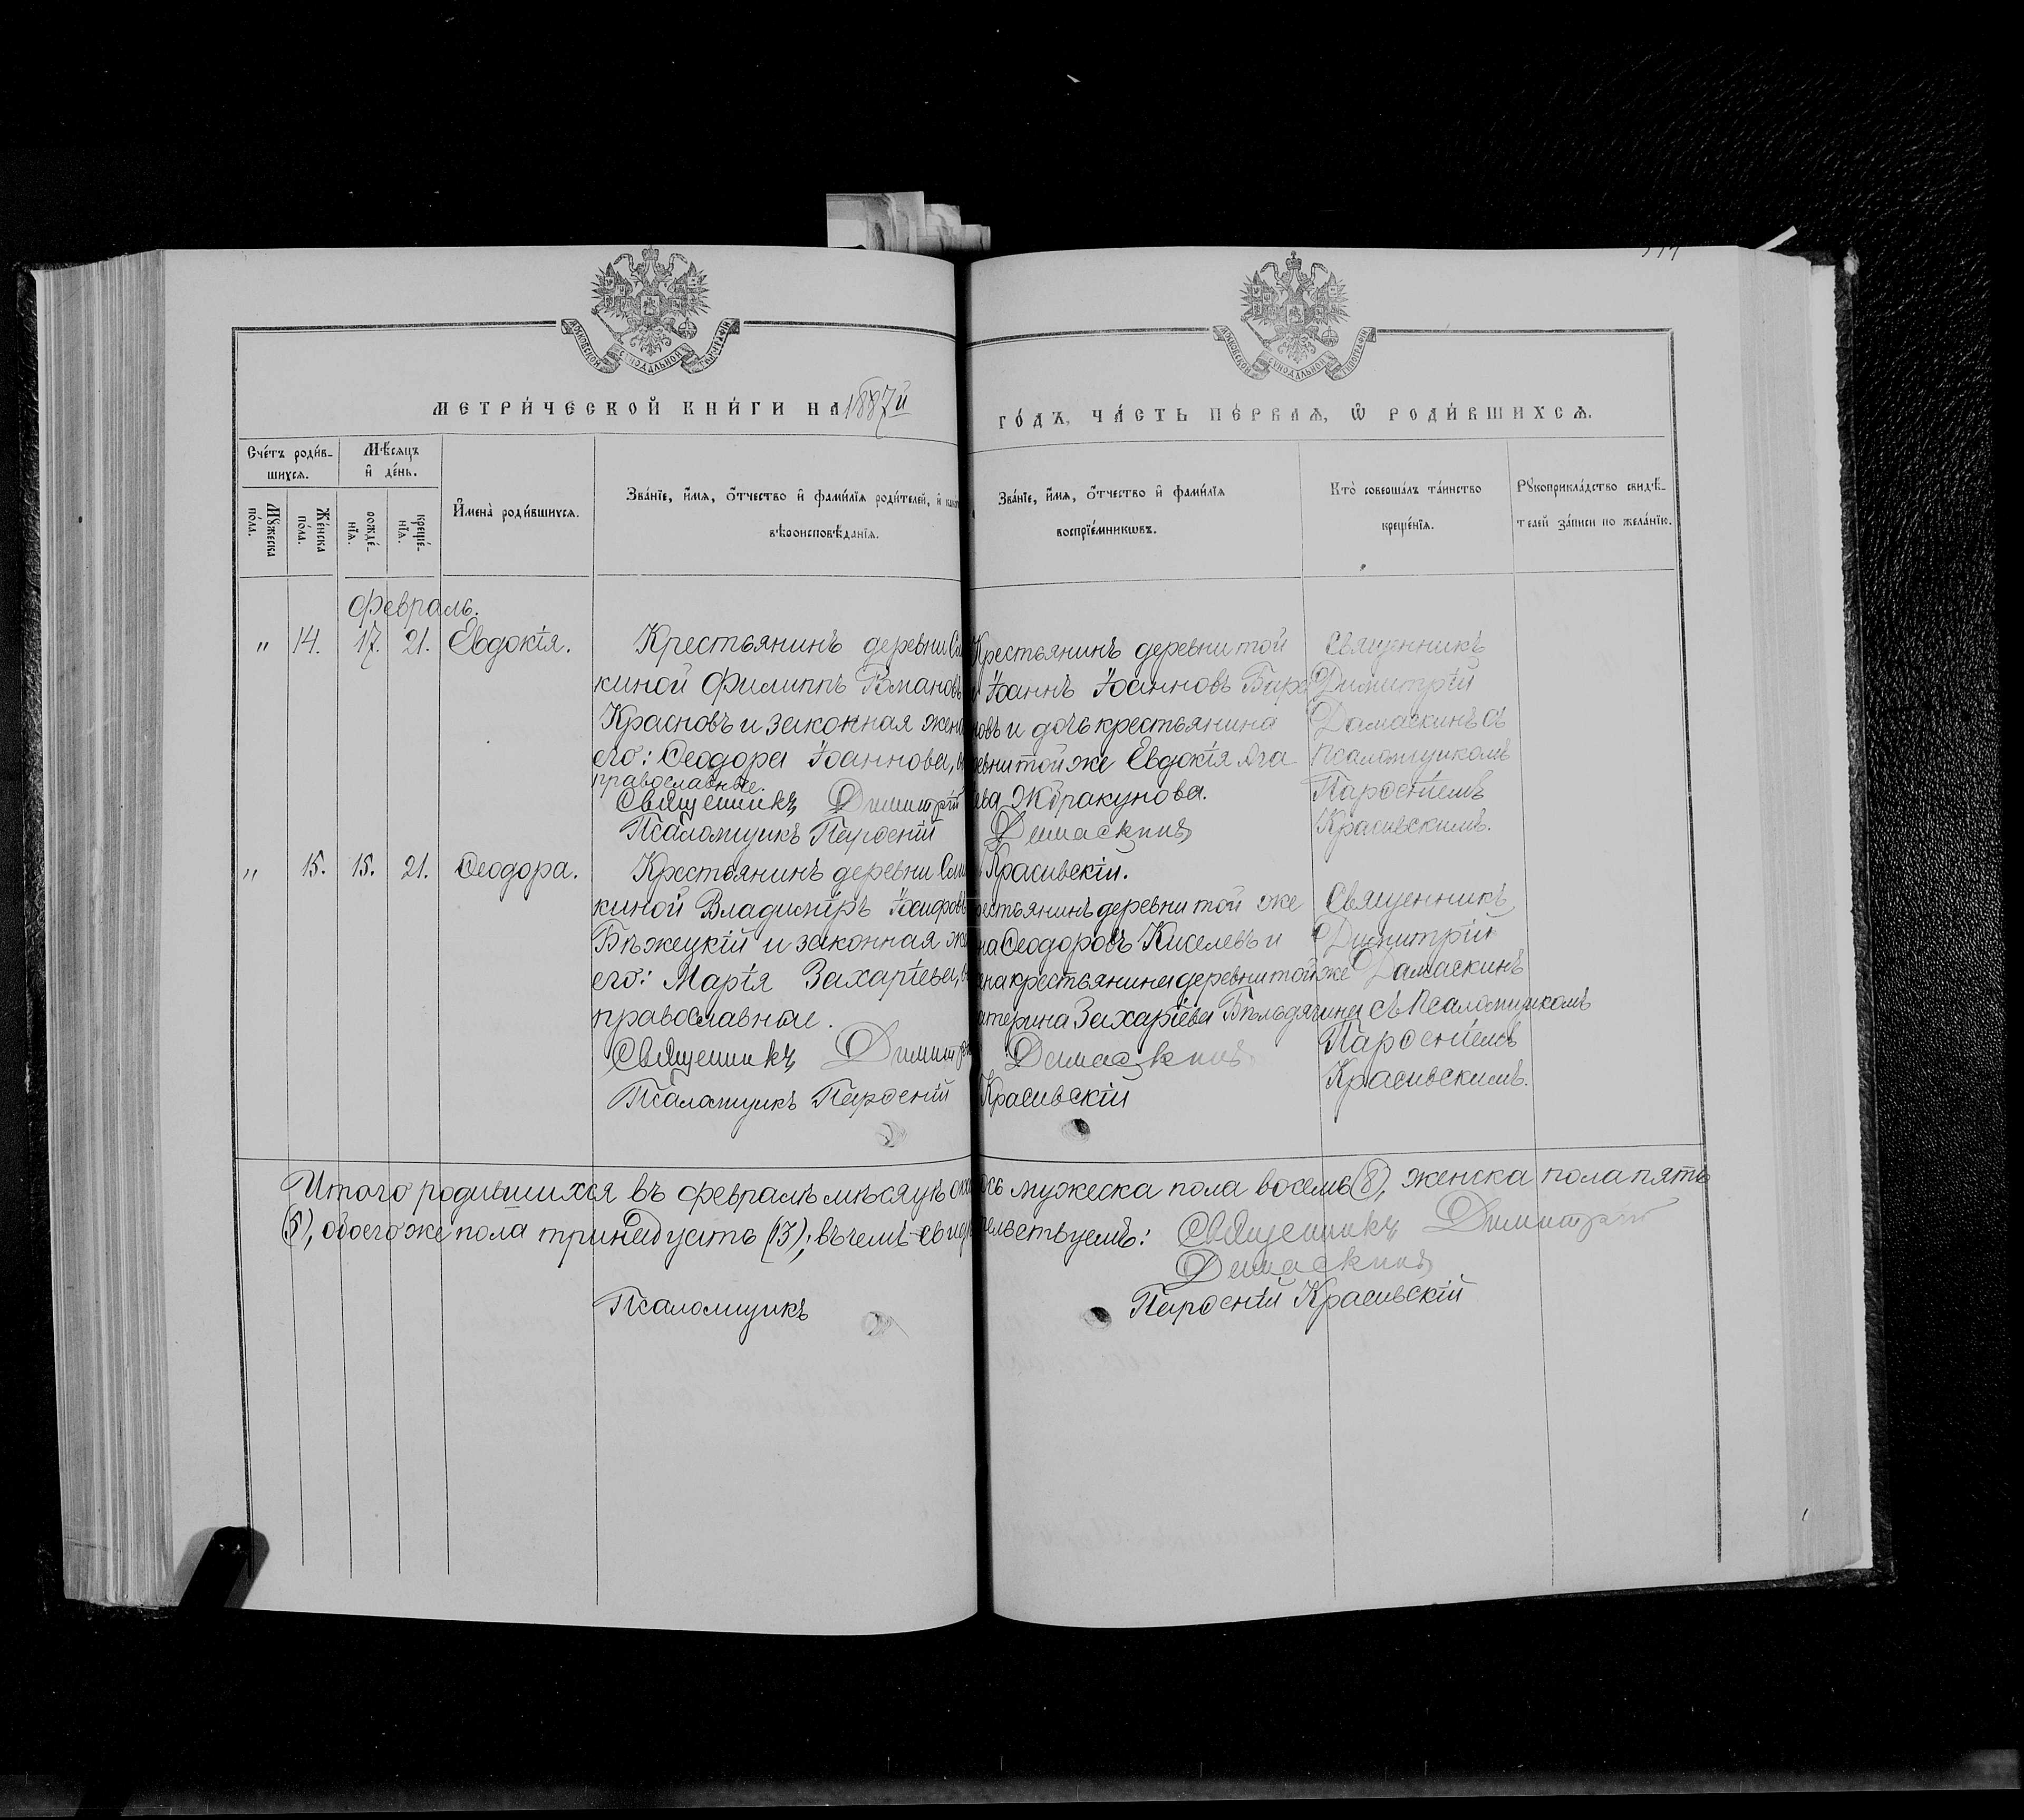 МОСКОВСКОЙ СѴНОДАЛЬНОЙ ТИПОГРАФІИ
МОСКОВСКОЙ СѴНОДАЛЬНОЙ ТИПОГРАФІИ
МЕТРИ́ЧЕСКОЙ КНИ́ГИ НА 1887й
ГО́ДЪ, ЧА́СТЬ ПЕ́РВАѦ, Ѡ҆ РОДИ́ВШИХСѦ.
Сче́тъ роди́в-
шихсѧ.
Мꙋ́жеска по́ла.
Же́нска по́ла.
Мѣ́сѧцъ
и҆ де́нь.
рожде́-нїѧ.
креще́-нїѧ.
И҆мена̀ роди́вшихсѧ.
Зва́нїе, и҆́мѧ, ѻ҆́тчество и҆ фами́лїѧ роди́телей, и҆
вѣроисповѣ́данїѧ.
Зва́нїе, и҆́мѧ, ѻ҆́тчество и҆ фами́лїѧ
воспрїе́мникѡвъ.
Кто̀ соверша́лъ та́инство
креще́нїѧ.
Рꙋкоприкла́дство свидѣ́-
телей за́писи по жела́нїю.
Февраль.
" 14. 17. 21. Евдокія.
Крестьянинъ деревни
киной Филиппъ Романовъ
Красновъ и законная жена
его: Ѳеодора Іоаннова,
православные.
Священникъ Димитрій
Псаломщикъ Парѳеній
Крестьянинъ деревни той
Іоаннъ Іоанновъ
новъ и дочь крестьянина
ревни той же Евдокія Ага
ева Жбракунова.
Дамаскинъ
Красивскій.
Священникъ
Димитрій
Дамаскинъ съ
Псаломщикомъ
Парѳеніемъ
Красивскимъ.
" 15. 15. 21. Ѳеодора.
Крестьянинъ деревни
киной Владиміръ Іосифовъ
Бѣжецкій и законная же
его: Марія Захаріева,
православные.
Священникъ Димитрій
Псаломщикъ Парѳеній
рестьянинъ деревни той же
на Ѳеодоровъ Киселевъ и
ена крестьянина деревни той же
атерина Захаріева Бѣльдягина
Дамаскинъ
Красивскій
Священникъ
Димитрій
Дамаскинъ
съ Псаломщикомъ
Парѳеніемъ
Красивскимъ.
Итого родившихся въ февралѣ мѣсяцѣ оказалось мужеска пола восемь (8), женска пола пять
(5), обоего же пола тринадцать (13); въ чемъ свидѣтельствуемъ: Священникъ Димитрій
Дамаскинъ
Псаломщикъ Парѳеній Красивскій